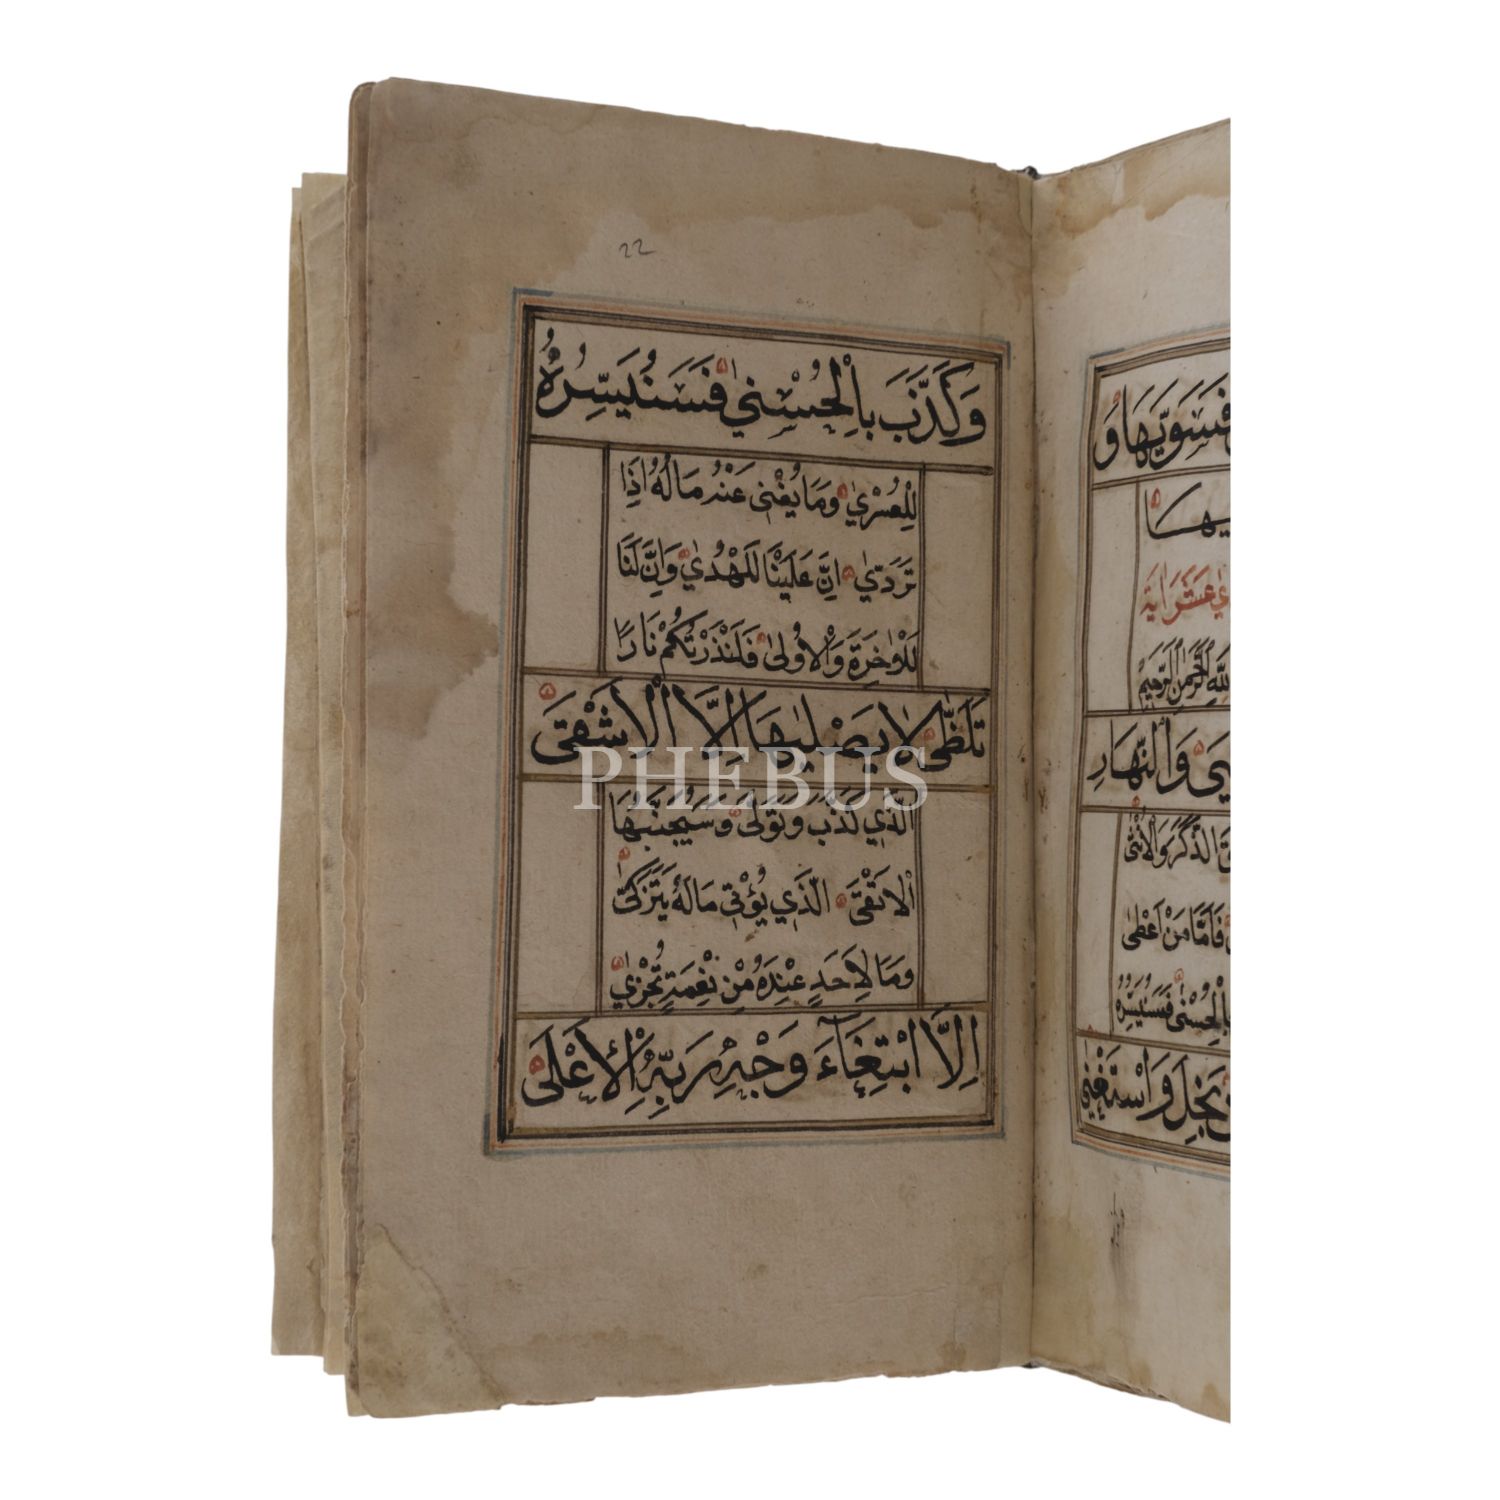 22
وَكَذَّبَ بِالْحُسْنٰى فَسَنُيَسِّرُهُ
لِلْعُسْرٰى وَمَا يُغْنٰى عَنْهُ مَالُهُ اِذَا
تَرَدّٰى اِنَّ عَلَيْنَا لَلْهُدٰى وَاِنَّ لَنَا
لَلْاٰخِرَةَ وَالْاُولٰى فَاَنْذَرْتُكُمْ نَارًا
تَلَظّٰى لَا يَصْلٰيهَا اِلَّا الْاَشْقَى
الَّذِي كَذَّبَ وَتَوَلّٰى وَسَيُجَنَّبُهَا
الْاَتْقَى الَّذِي يُؤْتِي مَالَهُ يَتَزَكّٰى
وَمَا لِاَحَدٍ عِنْدَهُ مِنْ نِعْمَةٍ تُجْزٰى
اِلَّا ابْتِغَاءَ وَجْهِ رَبِّهِ الْاَعْلٰى
فَسَوّٰيهَا وَ
عَشَرَ اٰيَة
اللّٰهِ الرَّحْمٰنِ الرَّحِيمِ
وَالنَّهَارِ
الذَّكَرَ وَالْاُنْثٰى
فَاَمَّا مَنْ اَعْطٰى
بِالْحُسْنٰى فَسَنُيَسِّرُهُ
بَخِلَ وَاسْتَغْنٰى
PHEBUS